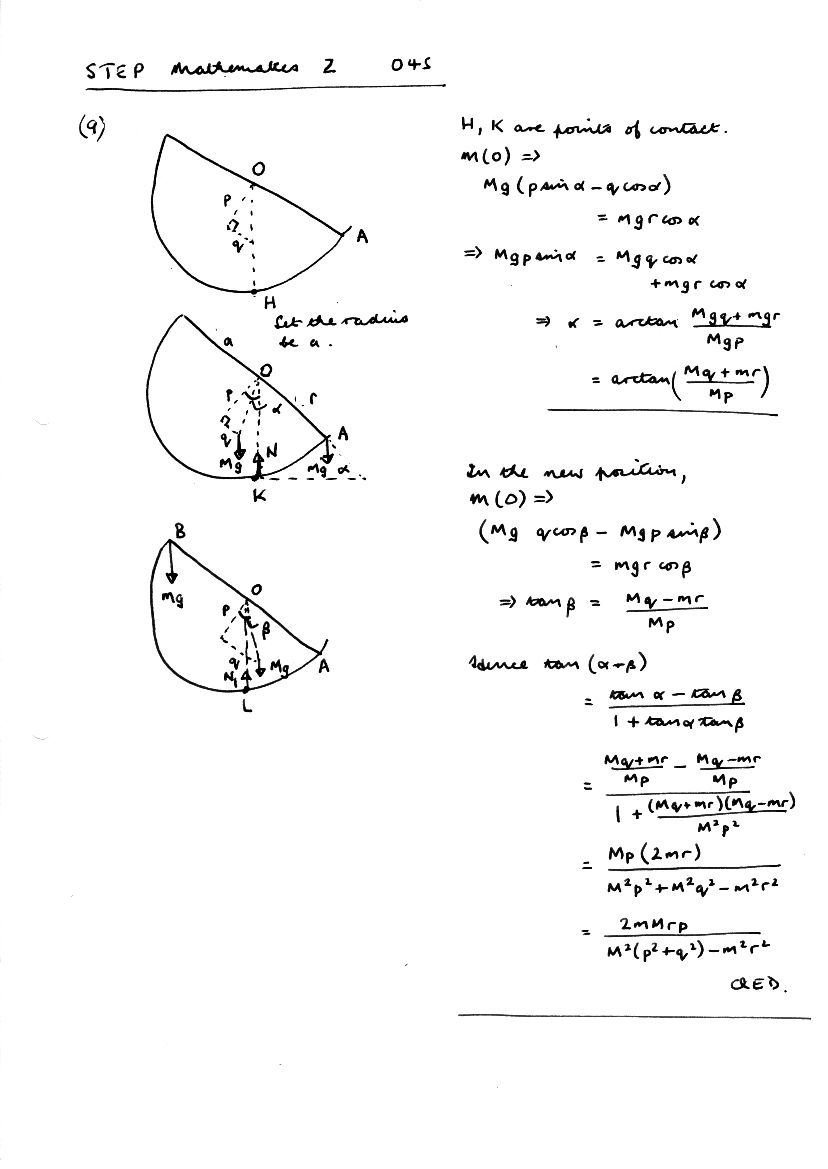 STEP Mathematics 2 045
(9)
O
p
q
A
H
Let the radius
be a.
a
O
p
α
r
q
A
Mg
N
mg
α
K
B
mg
O
p
β
q
Mg
A
N₁
L
H, K are points of contact.
m(O) =>
Mg(p sin α - q cos α)
= mgr cos α
=> Mgp sin α = Mgq cos α
+ mgr cos α
=> α = arctan (Mgq + mgr)/(Mgp)
= arctan((Mq + mr)/(Mp))
In the new position,
m(O) =>
(Mg q cos β - Mgp sin β)
= mgr cos β
=> tan β = (Mq - mr)/(Mp)
Hence tan (α-β)
= (tan α - tan β)/(1 + tan α tan β)
= ((Mq+mr)/(Mp) - (Mq-mr)/(Mp))/(1 + (Mq+mr)(Mq-mr)/(M²p²))
= Mp(2mr)/(M²p² + M²q² - m²r²)
= 2mMrp/(M²(p²+q²) - m²r²)
QED.